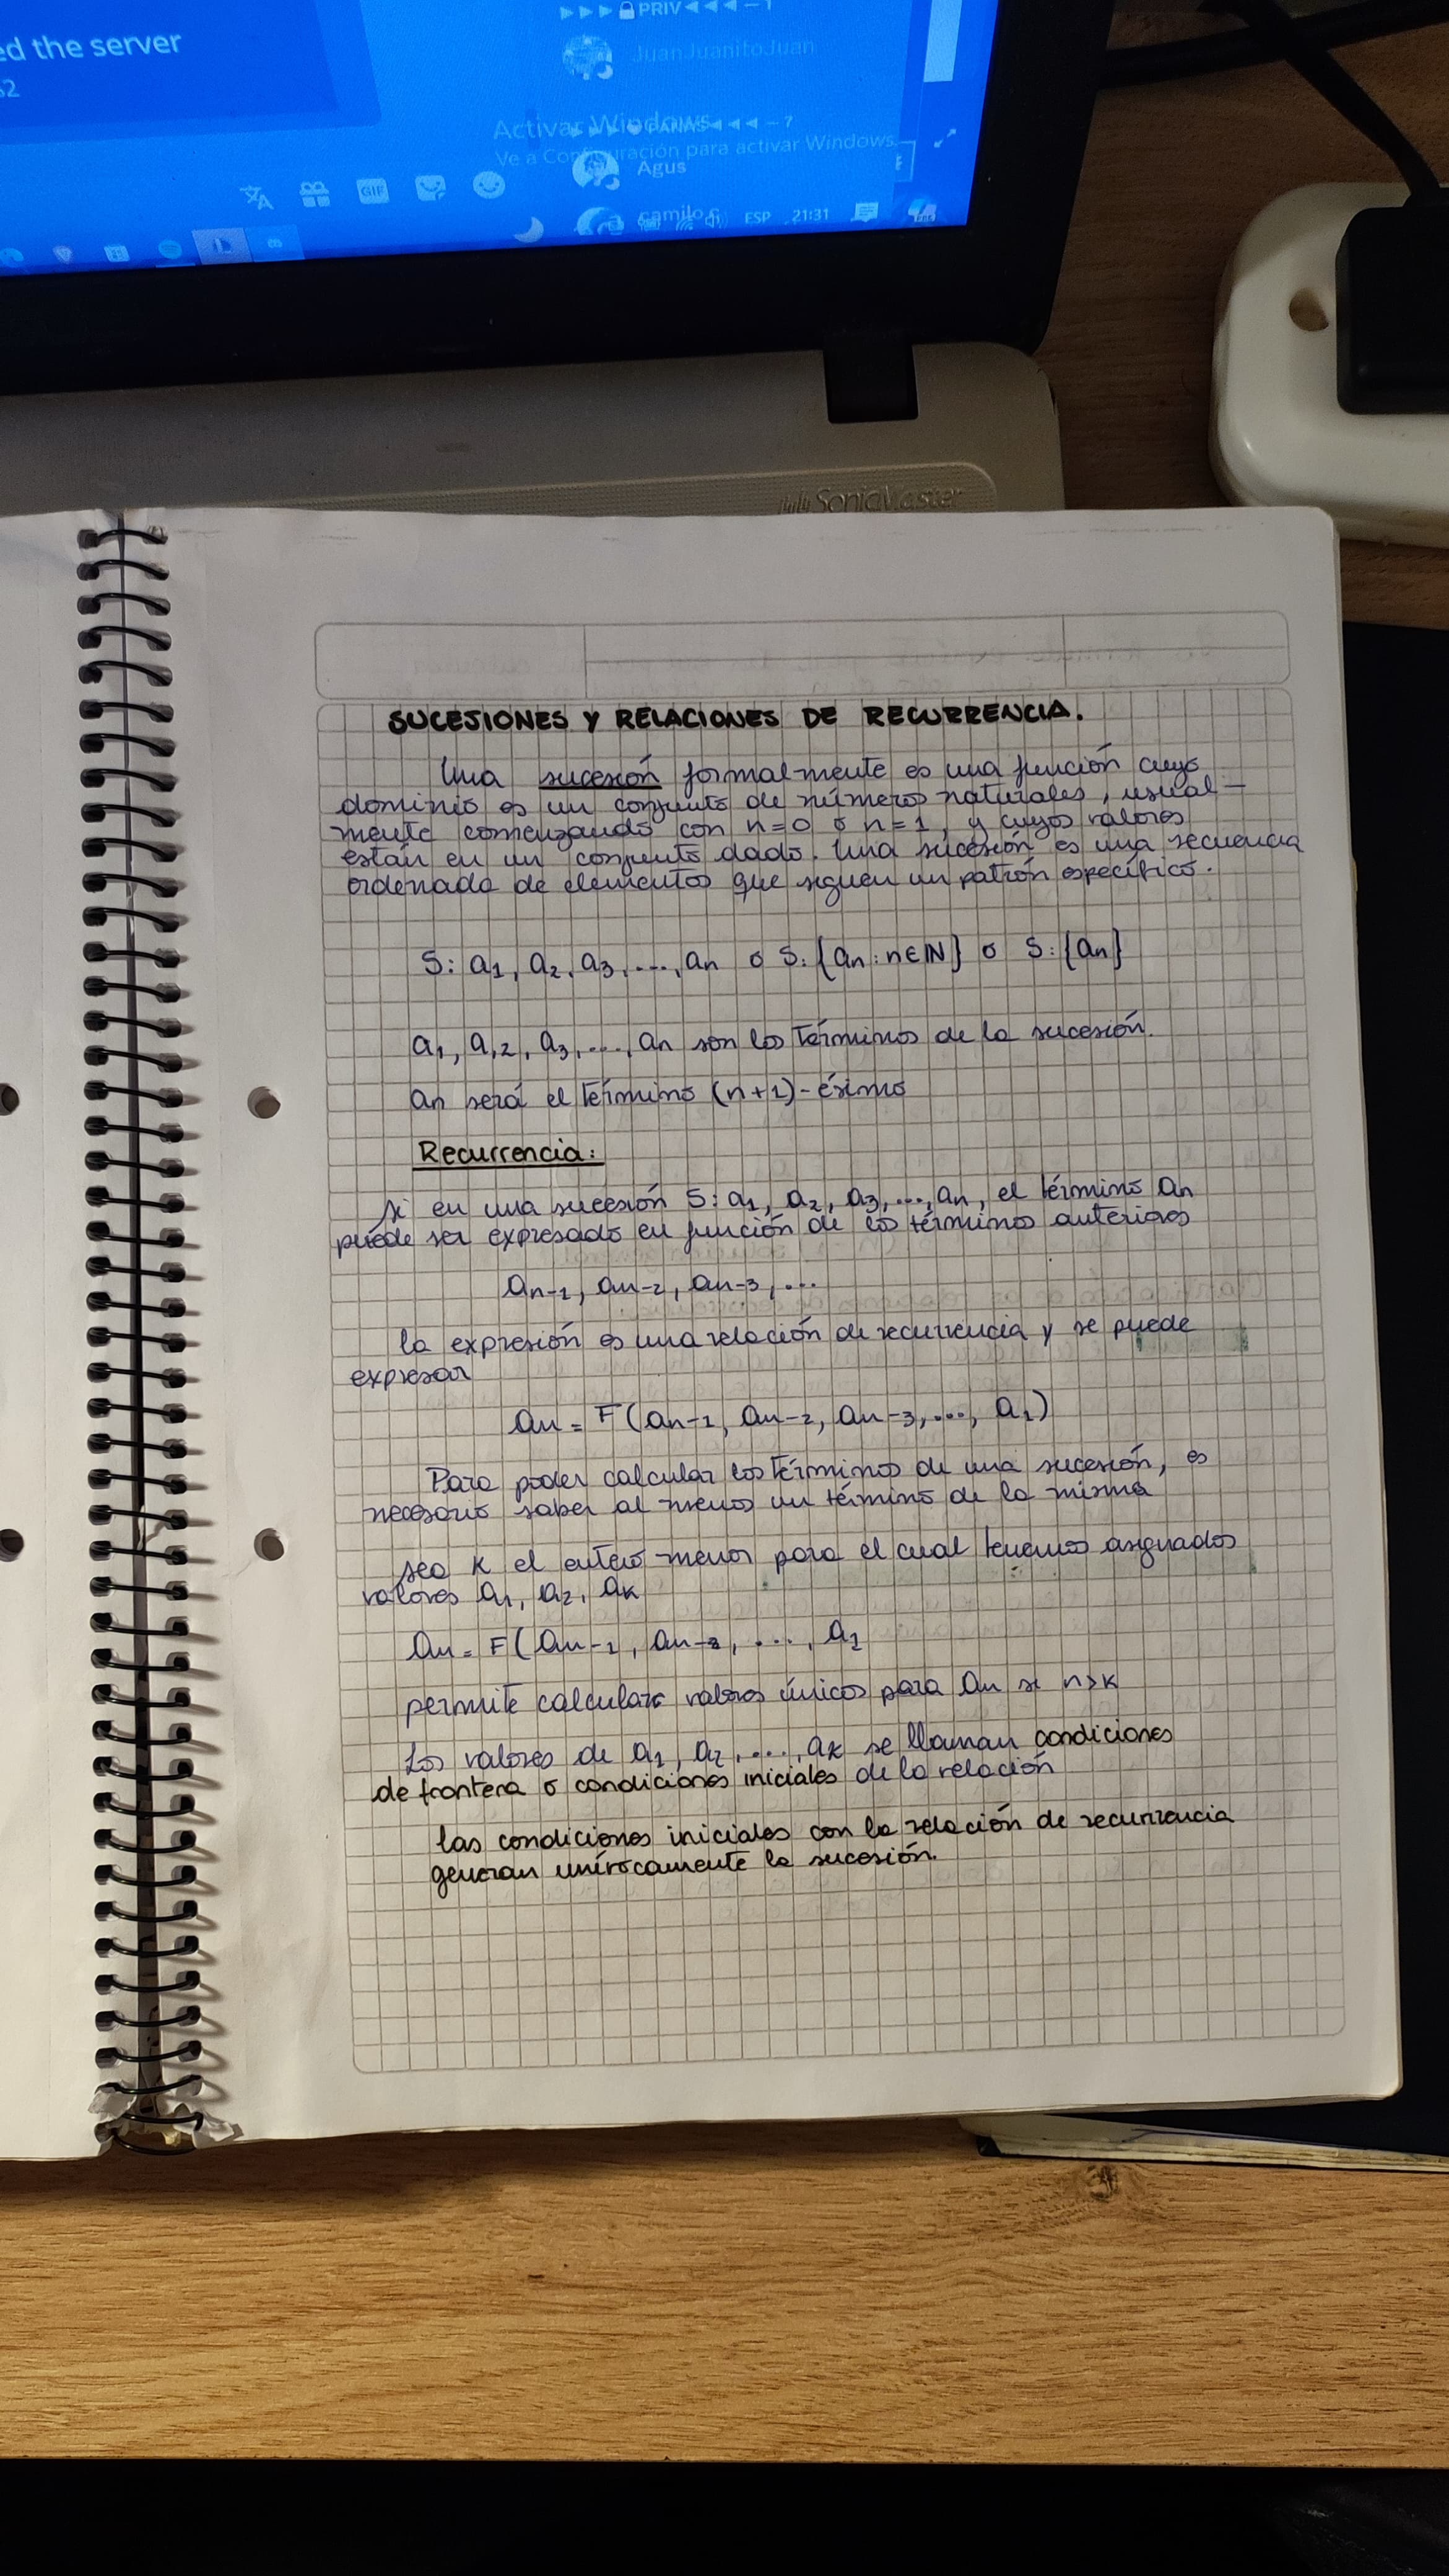 ed the server
▶ ▶ ▶ 🔒 PRIV ◀ ◀ ◀ — 1
JuanJuanitoJuan
Activar Windows
PANAS ◀ ◀ ◀ — 7
Ve a Configuración para activar Windows.
Agus
GIF
camilo
ESP 21:31
SonicMaster
SUCESIONES Y RELACIONES DE RECURRENCIA.
Una sucesión formalmente es una función cuyo
dominio es un conjunto de números naturales, usual-
mente comenzando con n=0 ó n=1, y cuyos valores
están en un conjunto dado. Una sucesión es una secuencia
ordenada de elementos que siguen un patrón específico.
S: a₁, a₂, a₃, ..., an o S: {an : n∈ℕ} o S: {an}
a₁, a,₂, a₃, ..., an son los términos de la sucesión.
an será el término (n+1)-ésimo
Recurrencia:
si en una sucesión S: a₁, a₂, a₃, ..., an, el término an
puede ser expresado en función de los términos anteriores
an-1, an-2, an-3, ...
la expresión es una relación de recurrencia y se puede
expresar
an = F(an-1, an-2, an-3, ..., a₁)
Para poder calcular los términos de una sucesión, es
necesario saber al menos un término de la misma
sea K el entero menor para el cual tenemos asignados
valores a₁, a₂, aK
an = F(an-1, an-2, ..., a₁
permite calcular valores únicos para an si n>K
Los valores de a₁, a₂, ..., aK se llaman condiciones
de frontera o condiciones iniciales de la relación
las condiciones iniciales con la relación de recurrencia
generan unívocamente la sucesión.